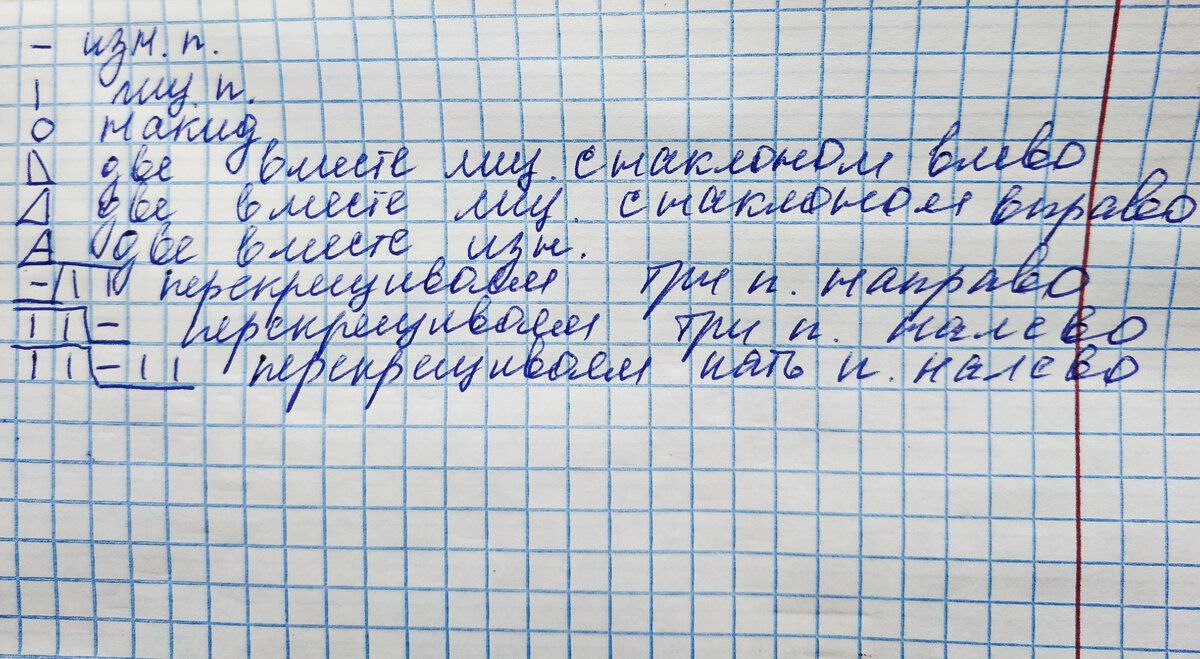 – изн. п.
| лиц. п.
О накид
две вместе лиц. с наклоном влево
две вместе лиц. с наклоном вправо
две вместе изн.
–/|| перекрещиваем три п. направо
||\– перекрещиваем три п. налево
||\–|| перекрещиваем пать п. налево